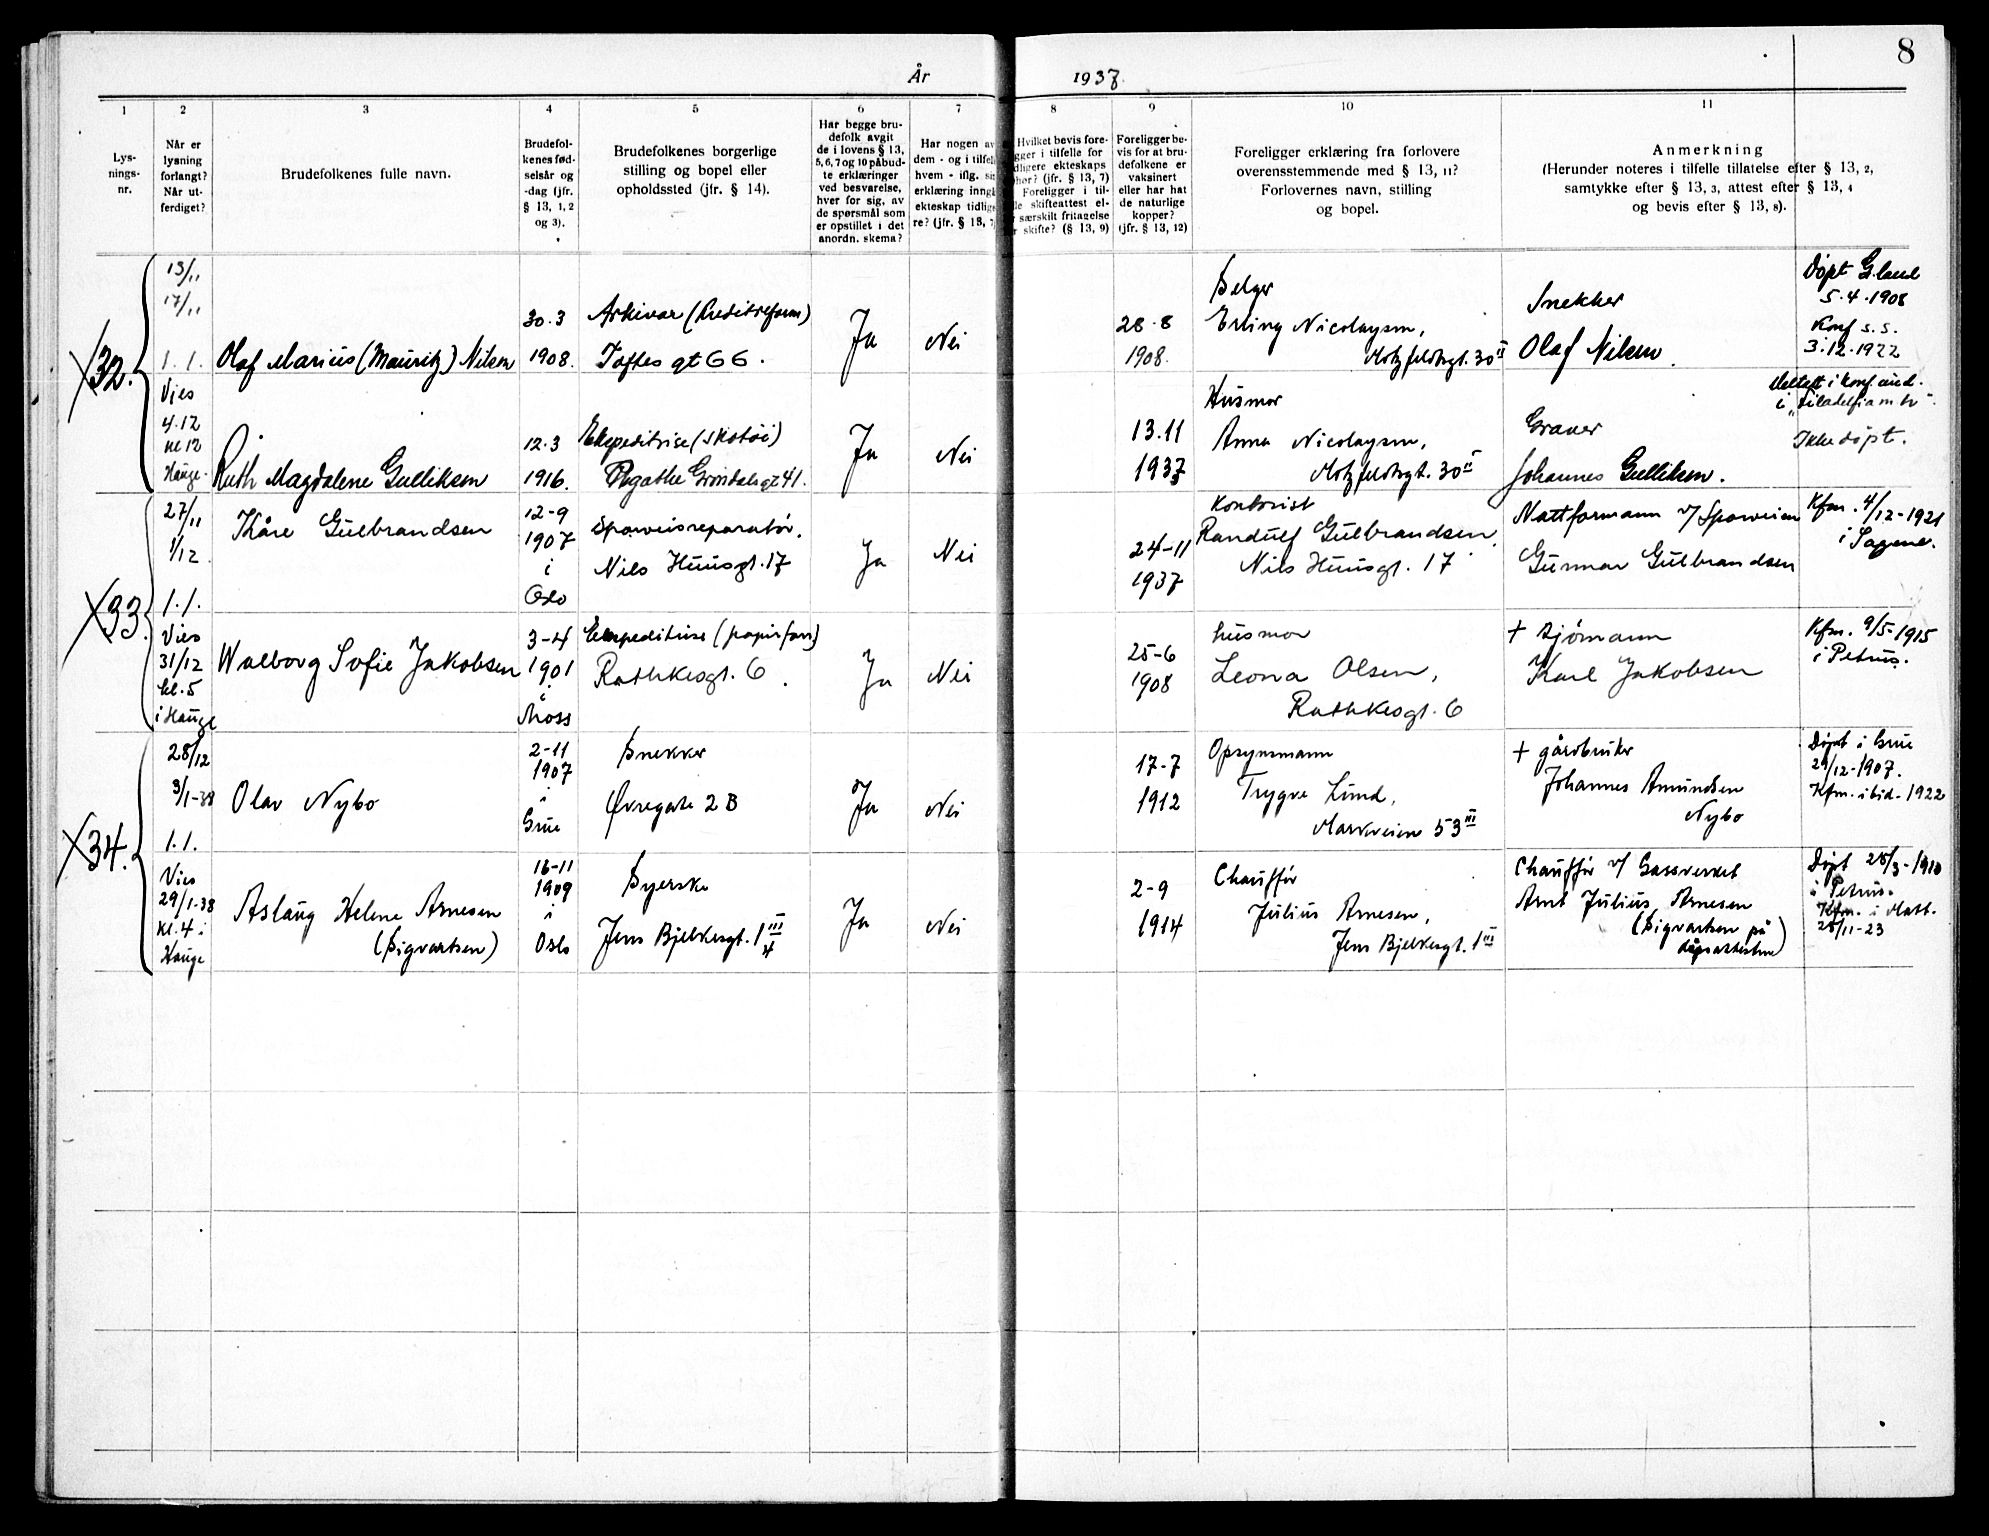 8
År 1937.
1 2 3 4 5 6 7 8 9 10 11
Lys-
nings-
nr.
Når er
lysning
forlangt?
Når ut-
ferdiget?
Brudefolkenes fulle navn.
Brudefol-
kenes fød-
selsår og
-dag (jfr.
§ 13, 1, 2
og 3).
Brudefolkenes borgerlige
stilling og bopel eller
opholdssted (jfr. § 14).
Har begge bru-
defolk avgit
de i lovens § 13,
5, 6, 7 og 10 påbud-
te erklæringer
ved besvarelse,
hver for sig, av
de spørsmål som
er opstillet i det
anordn. skema?
Har nogen av
dem - og i tilfelle
hvem - iflg. sin
erklæring inngå
ekteskap tidlige
re? (jfr. § 13, 7)
Hvilket bevis fore-
gger i tilfelle for
dligere ekteskaps
phør? (jfr. § 13, 7)
Foreligger i til-
lle skifteattest el-
r særskilt fritagelse
r skifte? (§ 13, 9)
Foreligger be-
vis for at bru-
defolkene er
vaksinert
eller har hat
de naturlige
kopper?
(jfr. § 13, 12)
Foreligger erklæring fra forlovere
overensstemmende med § 13, 11?
Forlovernes navn, stilling
og bopel.
Anmerkning
(Herunder noteres i tilfelle tillatelse efter § 13, 2,
samtykke efter § 13, 3, attest efter § 13, 4
og bevis efter § 13, 8).
X32.
13/11
17/11
1.1.
Olaf Marius (Mauritz) Nilsen
30.3
1908.
Arkivar (Kreditreform)
Toftes gt 66.
Ja
Nei
28.8
1908.
Selger
Erling Nicolaysen,
Motzfeldtsgt. 30 II
Snekker
Olaf Nilsen.
Døpt
5.4.1908
Konf s.s.
3.12.1922
Vies
4.12
kl 12
Hauge.
Ruth Magdalene Gulliksen
12.3
1916.
Ekspeditrise (skotøi)
Agathe Grøndalsgt 41.
Ja
Nei
13.11
1937
Husmor
Anna Nicolaysen,
Motzfeldtsgt. 30 II
Graver
Johannes Gulliksen.
i
Ikke døpt.
X33.
27/11
1/12
1.1.
Kåre Gulbrandsen
12-9
1907
i
Oslo
Sporveisreparatør.
Nils Huusgt. 17
Ja
Nei
24-11
1937
Kontorist
Randulf Gulbrandsen,
Nils Huusgt. 17
Nattformann v/ Sporveien
Gunnar Gulbrandsen
Kfm. 4/12-1921
i Sagene.
Vies
31/12
kl. 5
i Hauge
Walborg Sofie Jakobsen
3-4
1901
i
Moss
Ekspeditrise (papirforr)
Rathkesgt. 6.
Ja
Nei
25-6
1908
husmor
Leona Olsen,
Rathkesgt. 6
+ sjømann
Karl Jakobsen
Kfm. 9/5-1915
i Petrus.
X34.
28/12
3/1-38
1.1.
Olav Nybo
2-11
1907
i
Grue
Snekker
Øvregate 2 B
Ja
Nei
17-7
1912
Opsynsmann
Trygve Lund,
Markveien 53 III
+ gårdbruker
Johannes Amundsen
Nybo
Døpt i Grue
/12-1907.
Kfm. ibid. 1922
Vies
29/1-38
kl. 4 i
Hauge
Aslaug Helene Arnesen
(Sigvartsen)
16-11
1909
i
Oslo
Syerske
Jens Bjelkesgt. 1 III
4
Ja
Nei
2-9
1914
Chauffør
Julius Arnesen,
Jens Bjelkesgt. 1 III
Chauffør v/ Gassverket
Arnt Julius Arnesen
(Sigvartsen på
dåpsattesten)
Døpt 28/3-1910
i Petrus.
Kfm. i Matt.
25/11-23